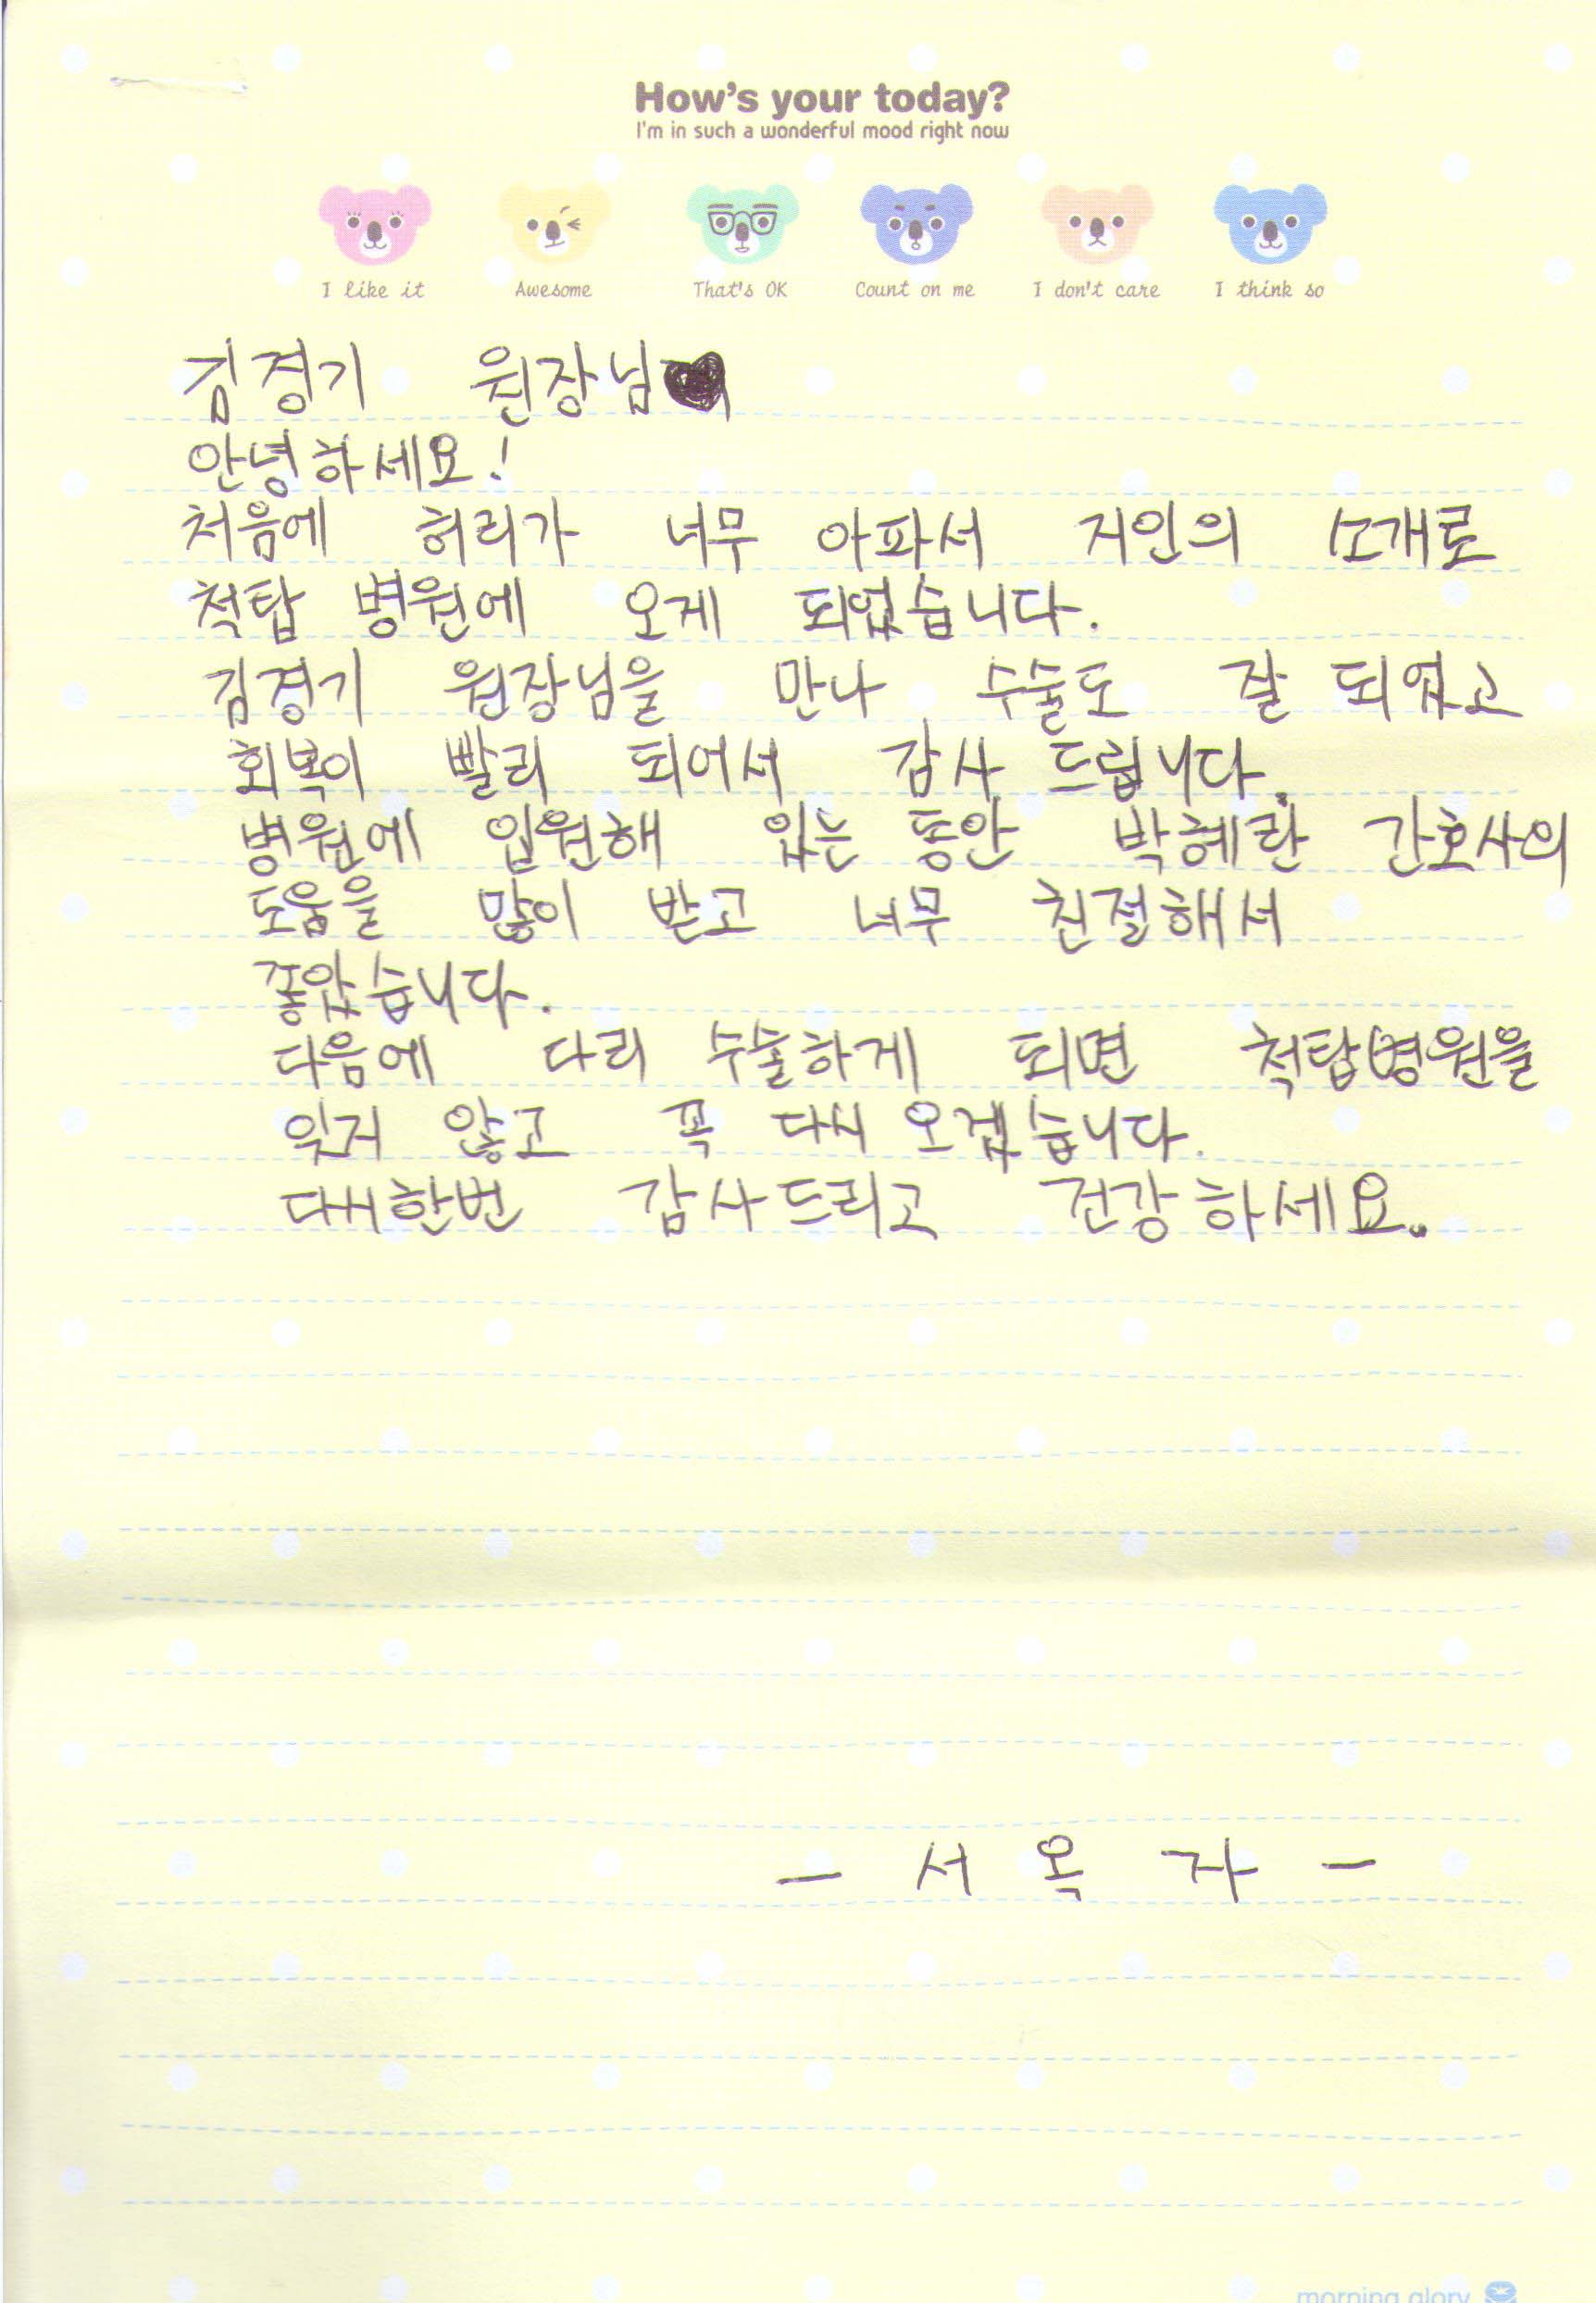 How's your today?
I'm in such a wonderful mood right now
I like it Awesome That's OK Count on me I don't care I think so
김경기 원장님
안녕하세요!
처음에 허리가 너무 아파서 지인의 소개로
척탑 병원에 오게 되었습니다.
김경기 원장님을 만나 수술도 잘 되었고
회복이 빨리 되어서 감사 드립니다.
병원에 입원해 있는 동안 박혜란 간호사의
도움을 많이 받고 너무 친절해서
좋았습니다.
다음에 다리 수술하게 되면 척탑병원을
잊지 않고 꼭 다시 오겠습니다.
다시한번 감사드리고 건강하세요..
- 서옥자 -
morning glory